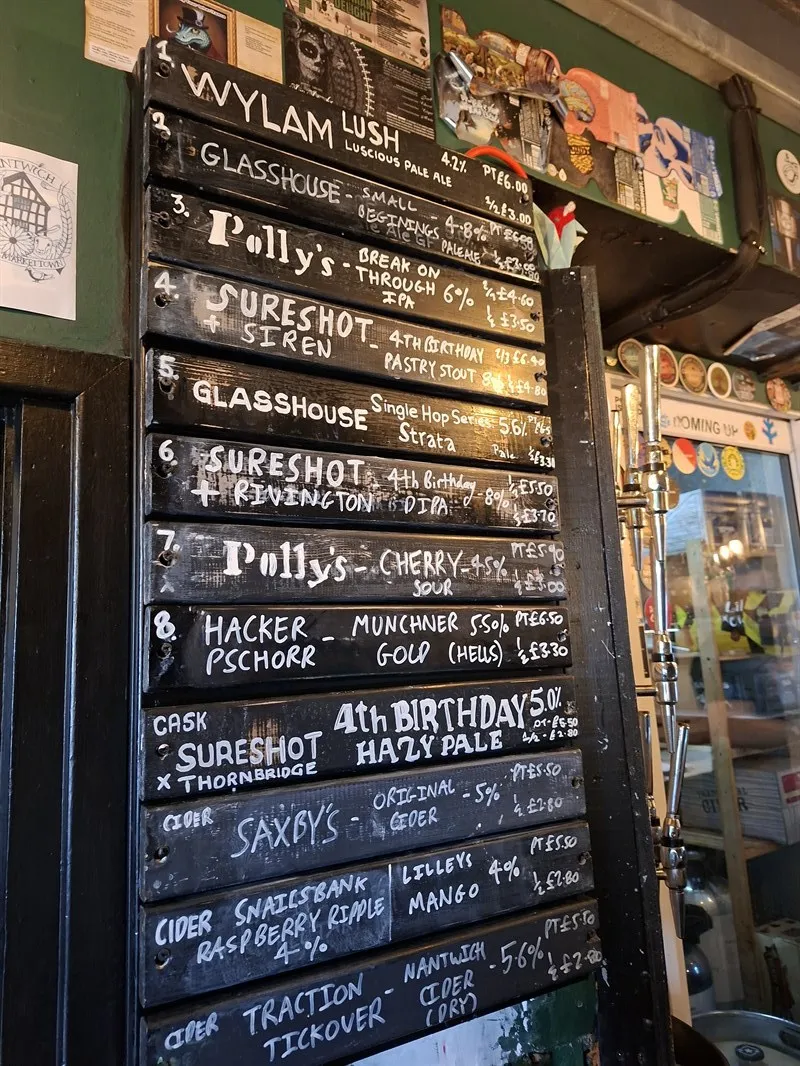 1. WYLAM LUSH 4.2% PT£6.00
LUSCIOUS PALE ALE ½£3.00
2. GLASSHOUSE - SMALL BEGININGS - 4.8%
PALE ALE GF
3. Polly's - BREAK ON THROUGH IPA 6% ½£3.50
4. SURESHOT + SIREN - 4TH BIRTHDAY
PASTRY STOUT ½£4.80
5. GLASSHOUSE Single Hop Series 5.6%
Strata Pale
6 SURESHOT + RIVINGTON 4th Birthday DIPA - 8% £5.50
½£3.70
7. Polly's - CHERRY SOUR - 4.5% PT£5.90
½£3.00
8. HACKER PSCHORR - MUNCHNER GOLD (HELLS) 5.5% PT£6.50
½£3.30
CASK
SURESHOT X THORNBRIDGE 4th BIRTHDAY HAZY PALE 5.0%
PT-£5.50
1/2-£2.80
CIDER SAXBY'S - ORIGINAL CIDER - 5% PT£5.50
½£2.80
CIDER SNAILSBANK RASPBERRY RIPPLE 4%
LILLEYS MANGO 4% PT£5.50
½£2.80
CIDER TRACTION TICKOVER - NANTWICH CIDER (DRY) - 5.6%
½£2.80
COMING UP
MARKET TOWN